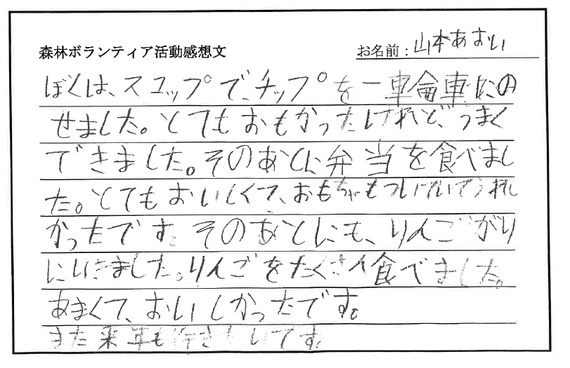 森林ボランティア活動感想文
お名前：山本あおい
ぼくは、スコップで、チップを一車侖車にの
せました。とてもおもかったけれど、うまく
できました。そのあとに弁当を食べまし
た。とてもおいしくて、おもちゃもついていてうれし
かったです。そのあとにも、りんごがり
にいきました。りんごをたくさん食べました。
あまくて、おいしかったです。
また来年も行きたいです。